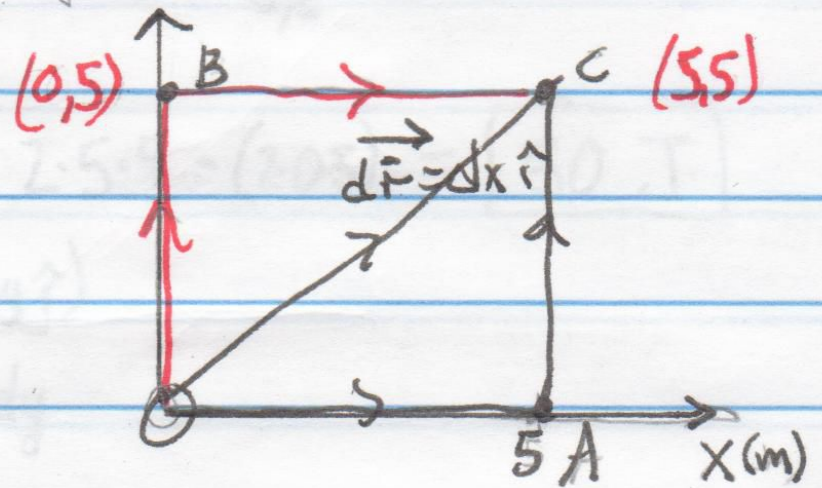 (0,5) B C (5,5)
d\vec{r} = dx î
O
5 A X(m)